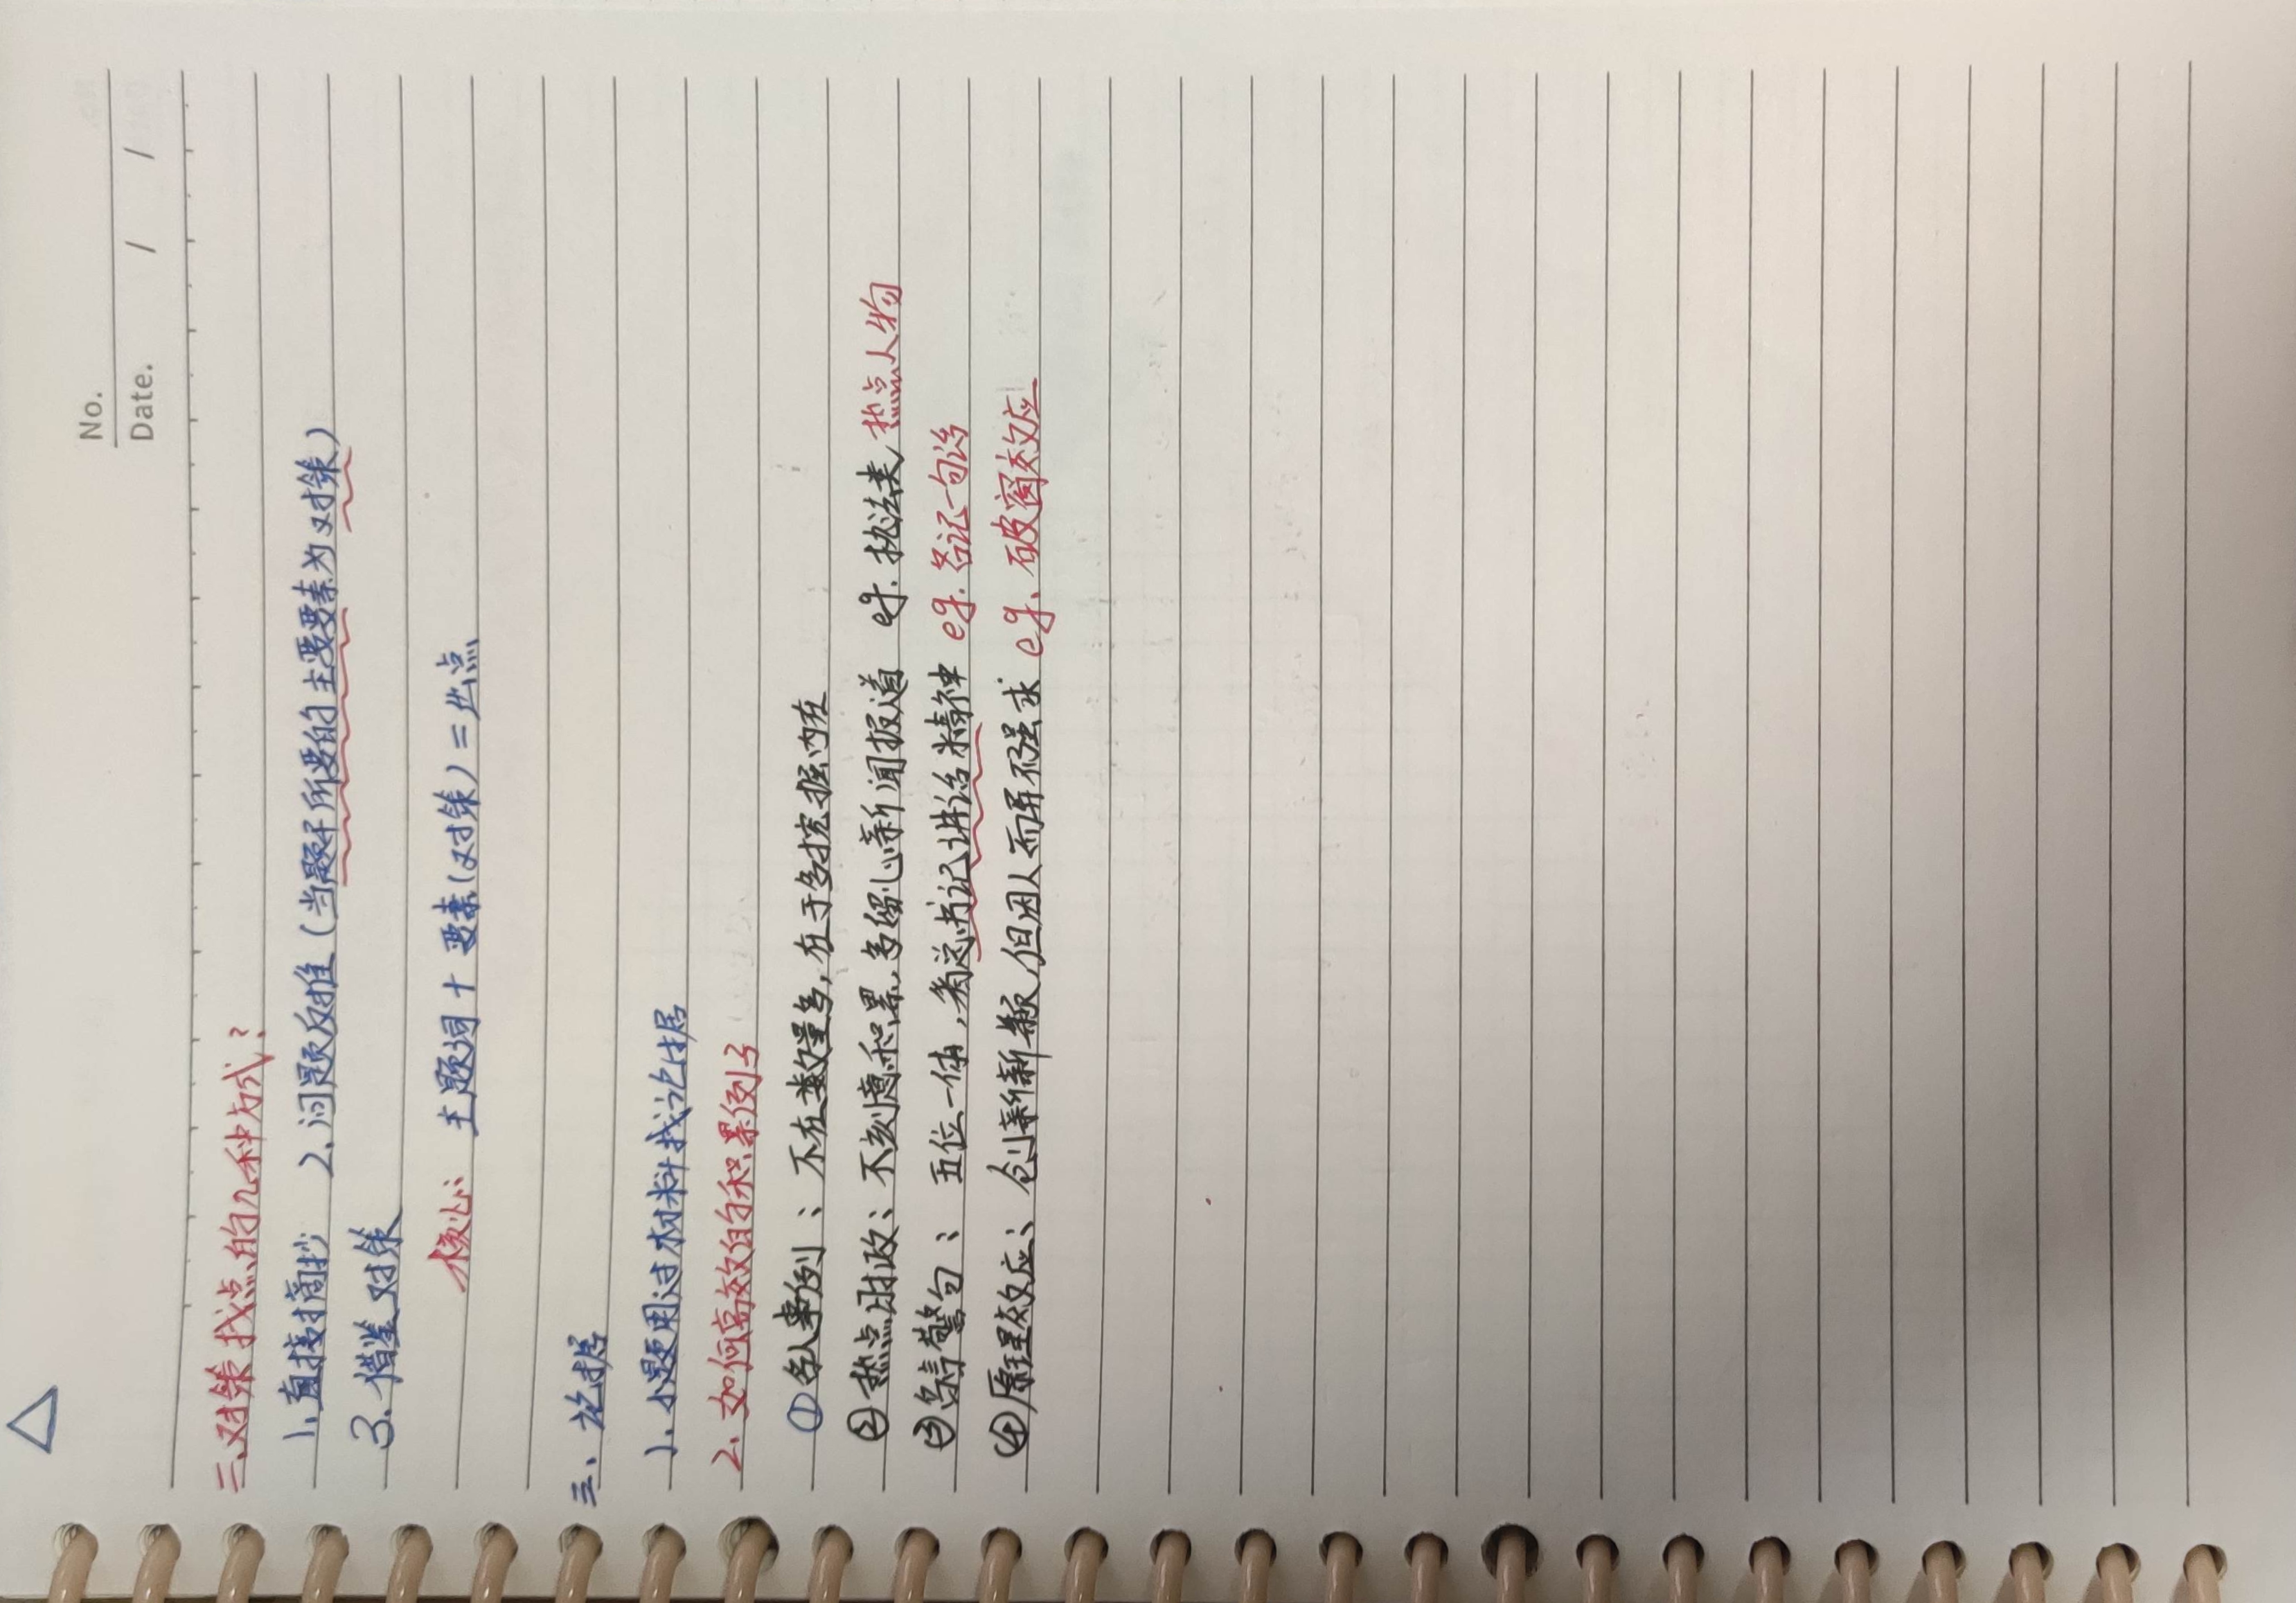 No.
Date. / /
二、对策找点的几种方式？
1.直接摘抄 2.问题反推（当题干所要的主要要素为对策）
3.借鉴对策
核心：主题词＋要素（对策）＝出点
三、论据
1.小题用过材料找论据
2.如何高效的积累例子
①名人事例：不在数量多，在于多挖掘内在
②热点时政：不刻意积累，多留心新闻报道 eg.执法类热点人物
③名言警句：五位一体，看总书记讲话精神 eg.各记一句话
④原理效应：创新新颖，但因人而异不强求 eg.破窗效应